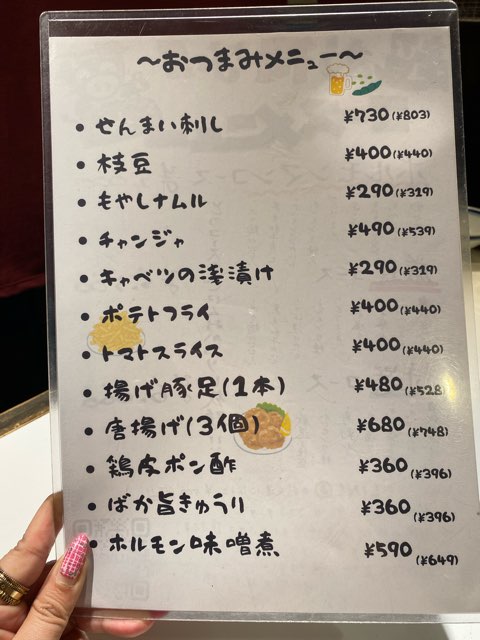 ～おつまみメニュー～
・せんまい刺し ¥730(¥803)
・枝豆 ¥400(¥440)
・もやしナムル ¥290(¥319)
・チャンジャ ¥490(¥539)
・キャベツの浅漬け ¥290(¥319)
・ポテトフライ ¥400(¥440)
・トマトスライス ¥400(¥440)
・揚げ豚足(1本) ¥480(¥528)
・唐揚げ(3個) ¥680(¥748)
・鶏皮ポン酢 ¥360(¥396)
・ばか旨きゅうり ¥360(¥396)
・ホルモン味噌煮 ¥590(¥649)